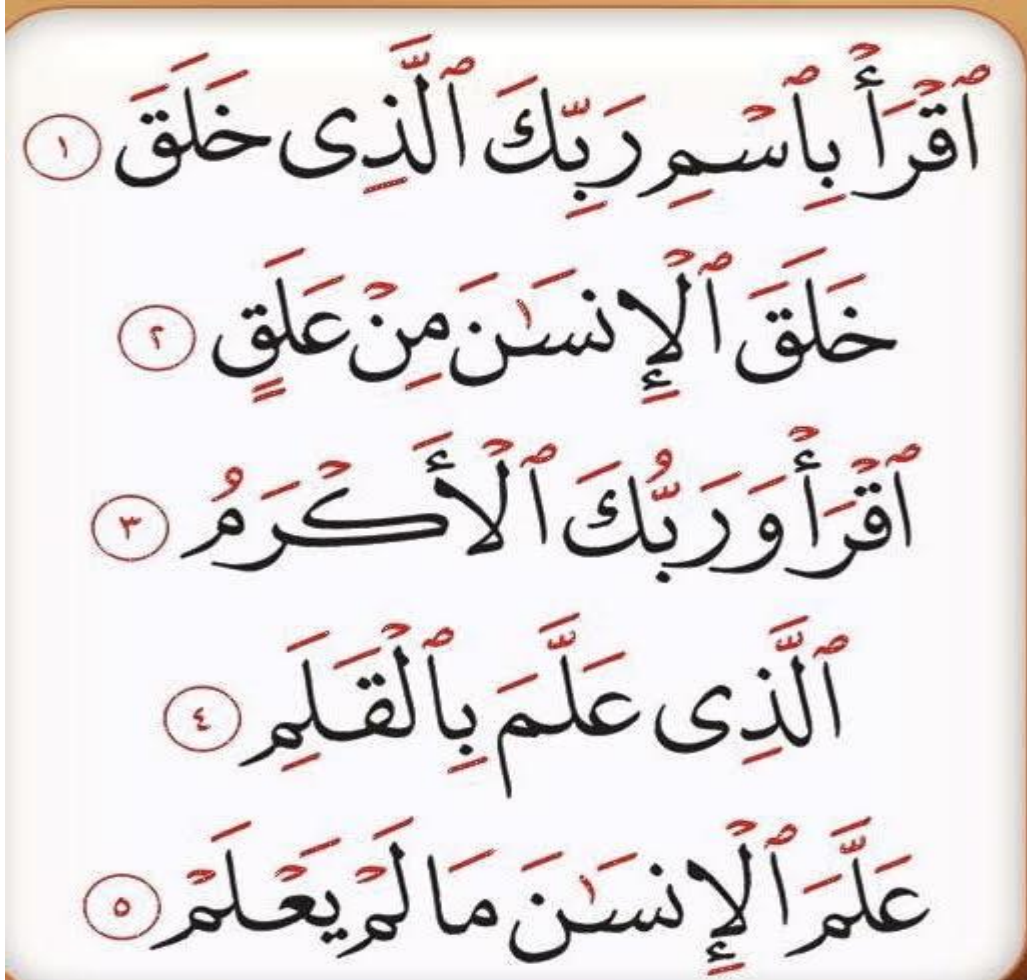 ٱقۡرَأۡ بِٱسۡمِ رَبِّكَ ٱلَّذِى خَلَقَ ١
خَلَقَ ٱلۡإِنسَٰنَ مِنۡ عَلَقٍ ٢
ٱقۡرَأۡ وَرَبُّكَ ٱلۡأَكۡرَمُ ٣
ٱلَّذِى عَلَّمَ بِٱلۡقَلَمِ ٤
عَلَّمَ ٱلۡإِنسَٰنَ مَا لَمۡ يَعۡلَمۡ ٥